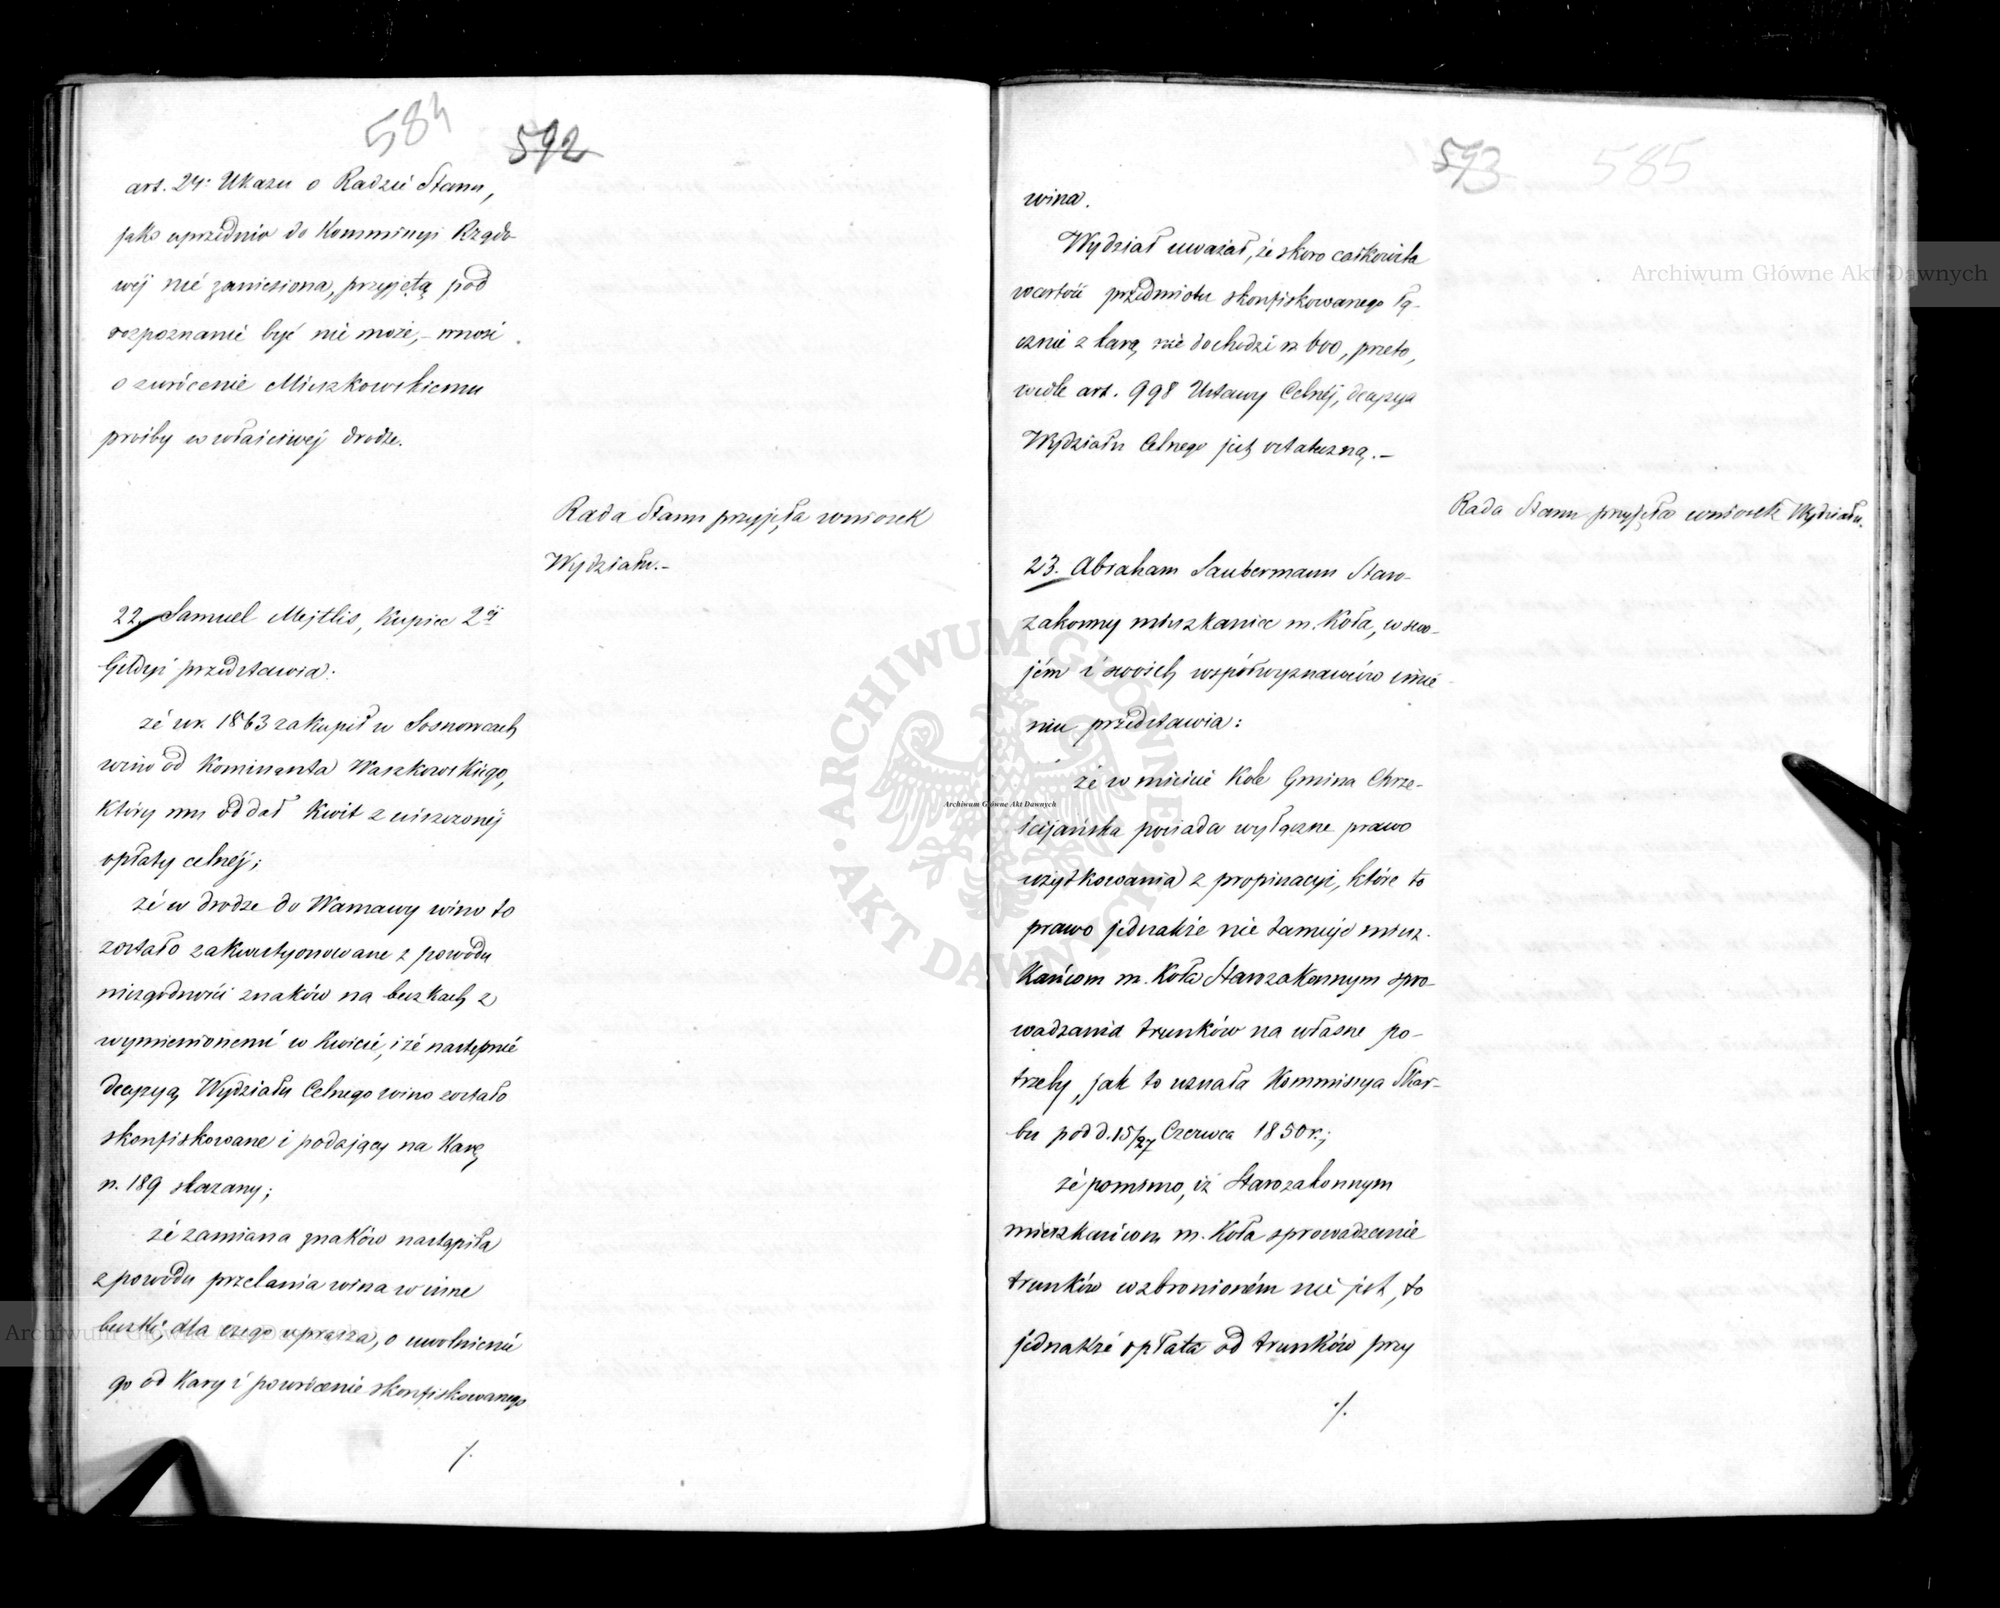 584
592
art. 24: Ukazu o Radzie Stanu,
jako uprzednio do Kommissyi Rządo-
wéj nie zaniesiona, przyjętą pod
rozpoznanie być nie może, – wnosi
o zwrócenie Mieszkowskiemu
prośby w właściwéj drodze.
Rada Stanu przyjęła wniosek
Wydziału. –
22. Samuel Mejtlis, Kupiec 2éj
Gildyi przedstawia:
że w r. 1863 zakupił w Sosnowcach
wino od Kominanta Waszkowskiego,
który mu oddał Kwit z uiszczonéj
opłaty celnéj;
że w drodze do Warszawy wino to
zostało zakwestyonowane z powodu
niezgodności znaków na beczkach z
wymienionemi w Kwicie, i że następnie
decyzyą Wydziału Celnego wino zostało
skonfiskowane i podający na Karę
rs. 189 skazany;
że zamiana znaków nastąpiła
z powodu przelania wina w inne
beczki, dla czego uprasza, o uwolnienie
go od Kary i powrócenie skonfiskowanego
./.
593
585
wina.
Wydział uważał, że skoro całkowita
wartość przedmiotu skonfiskowanego łą-
cznie z karą nie dochodzi rs 600, przeto,
wedle art. 998 Ustawy Celnéj, decyzya
Wydziału Celnego jest ostateczną. –
Rada Stanu przyjęła wniosek Wydziału.
23. Abraham Saubermann Staro-
zakonny mieszkaniec m. Koła, w swo-
jém i swoich współwyznawców imie-
niu przedstawia:
że w mieście Kole Gmina Chrze-
ścijańska posiada wyłączne prawo
użytkowania z propinacyi, które to
prawo jednakże nie tamuje miesz-
kańcom m. Koła Starozakonnym spro-
wadzania trunków na własne po-
trzeby, jak to uznała Kommissya Skar-
bu pod d. 15/27 Czerwca 1850 r.;
że pomimo, iż Starozakonnym
mieszkańcom m. Koła sprowadzanie
trunków wzbronioném nie jest, to
jednakże opłata od trunków przy
./.
Archiwum Główne Akt Dawnych
Archiwum Główne Akt Dawnych
Archiwum Główne Akt Dawnych
ARCHIWUM GŁÓWNE AKT DAWNYCH